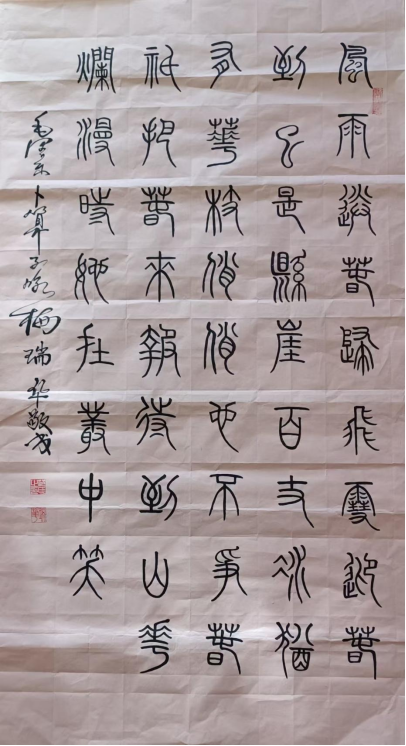 風雨送春歸飛雪迎春
到已是縣崖百丈冰猶
有華枝俏俏也不爭春
祇把春來報待到山花
爛漫時她在叢中笑
毛澤东卜算子咏梅瑞华敬书